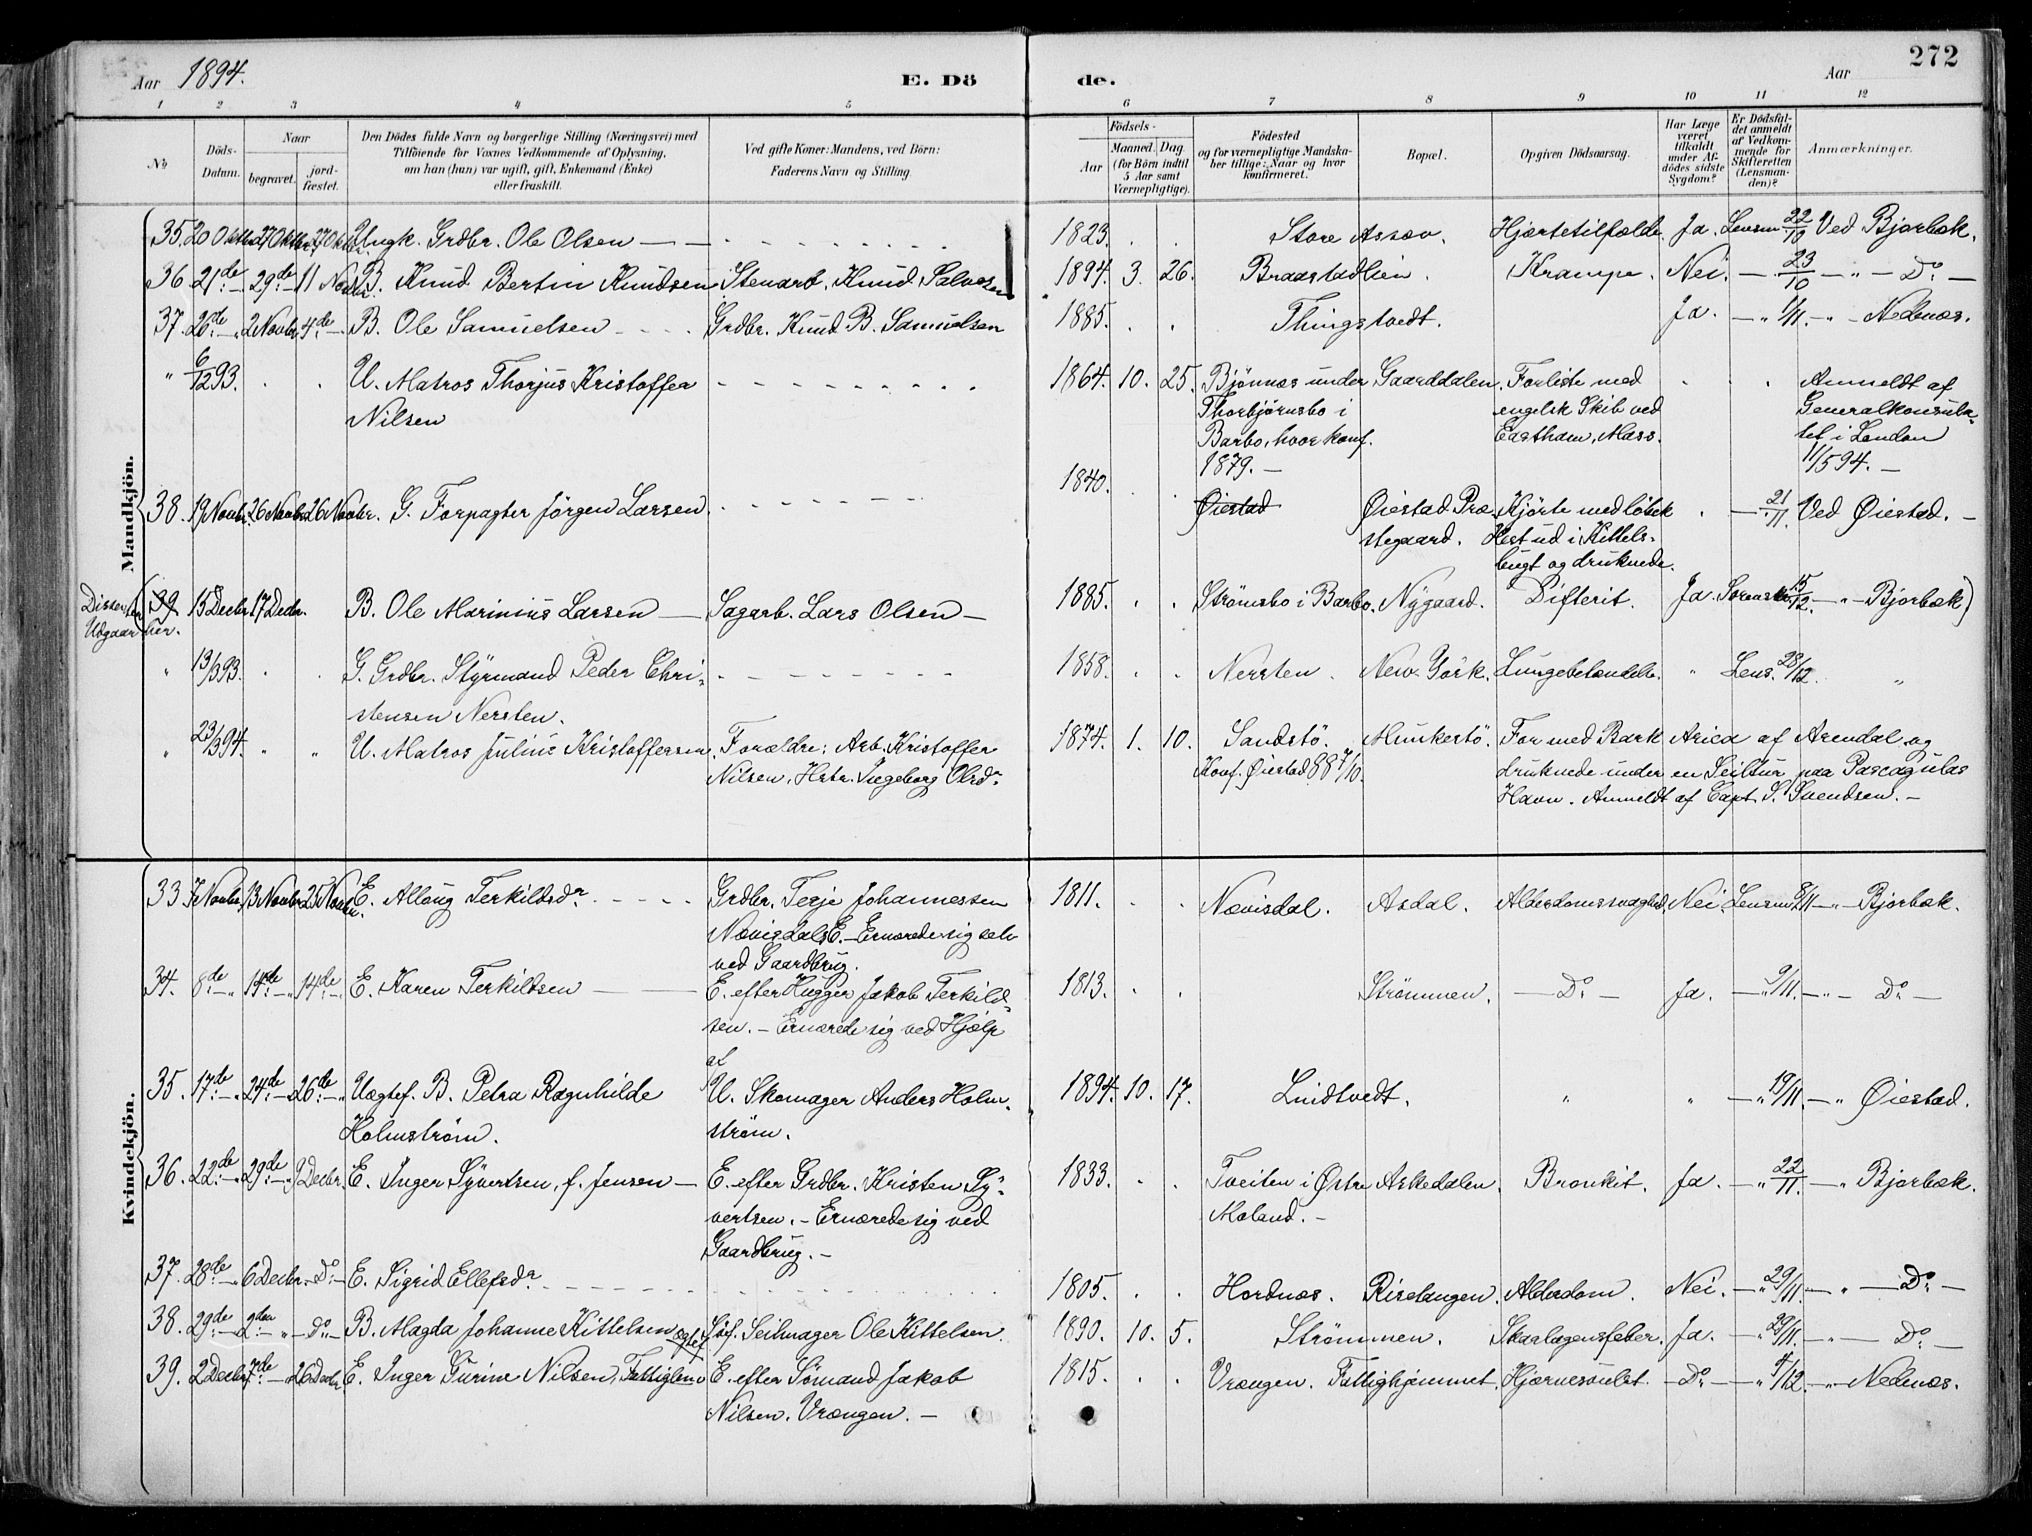 272
Aar 1894.
E. Dö de.
Aar
1 2 3 4 5 6 7 8 9 10 11 12
No
Döds-Datum.
Naar
begravet.
jord-fæstet.
Den Dödes fulde Navn og borgerlige Stilling (Næringsvei) med
Tilföiende for Voxnes Vedkommende af Oplysning,
om han (hun) var ugift, gift, Enkemand (Enke)
eller fraskilt.
Ved gifte Koner: Mandens, ved Börn:
Faderens Navn og Stilling.
Födsels-
Aar
Maaned. Dag.
(for Börn indtil
5 Aar samt
Værnepligtige).
Födested
og for værnepligtige Mandska-
ber tillige: Naar og hvor
konfirmeret.
Bopæl.
Opgiven Dödsaarsag.
Har Læge
været
tilkaldt
under Af-
dödes sidste
Sygdom?
Er Dödsfal-
det anmeldt
af Vedkom-
mende for
Skifteretten
(Lensman-
den)?
Anmærkninger.
Mandkjön.
35. 20 Oktbr. 27 Oktbr. 27 Oktbr. Ungk. Grdbr. Ole Olsen — 1823. Store Assæv. Hjærtetilfælde. Ja. Lensm 22/10 Ved Bjorbæk.
36 21de 29de 11 Novbr. B. Knud Bertin Knudsen Stenarb. Knud Salvesen 1894. 3. 26. Braastadlien. Krampe. Nei. — 23/10 — " — Do —
37. 26de 2 Novbr 4de B. Ole Samuelsen Grdbr. Knud B. Samuelsen 1885. Thingstvedt. Ja. — " 1/11. — " — Nedenæs.
" 6/12 93. U. Matros Thorjus Kristoffer
Nilsen
1864. 10. 25. Bjønnes under
Thorbjørnsbo i
Barbo, hvor konf.
1879. —
Gaarddalen. Forliste med
engelsk Skib ved
Eastham, Mass.
Anmeldt af
Generalkonsula-
tet i London
11/5 94. —
38. 19 Novbr. 26 Novbr. 26 Novbr. G. Forpagter Jörgen Larsen. 1840. Øiestad Øiestad Præ-
stegaard. Kjörte med löbsk
Hest ud i Kittels-
bugt og druknede.
— 21/11. Ved Øiestad. —
39 15 Decbr 17 Decbr. B. Ole Marinius Larsen — Sagarb. Lars Olsen — 1885. Strömsbo i Barbo. Nygaard. Difterit. Ja. 15/12. — " — Bjorbæk)
" 13/3 93. G. Grdbr. Styrmand Peder Chri-
stensen Nersten.
1858. Nersten. New York. Lungebetændelse. " Lens. 28/12. "
" 23/3 94. " " U. Matros Julius Kristoffersen. Forældre: Arb. Kristoffer
Nilsen, Hstr. Ingeborg Olsdr.
1874. 1. 10. Sandstö.
Konf. Øiestad 88 7/10.
Munkestö. For med Bark Arica af Arendal og
druknede under en Seiltur paa Pascagulas
Havn. Anmeldt af Capt. S. Svendsen. —
Kvindekjön.
33 7 Novbr. 13 Novbr 25 Novbr. E. Alloug Terkildsdr Grdbr. Terje Johannessen
Nævisdals E. — Ernærede sig selv
ved Gaardbrug.
1811. Nævisdal. Asdal. Alderdomssvaghed. Nei. Lensm 8/11 — " — Bjorbæk.
34. 8de 14de 14de E. Karen Terkildsen — E. efter Hugger Jakob Terkild-
sen. — Ernærede sig ved Hjælp
af
1813. Strömmen. — Do — Ja. — " 9/11. — " — Do —
35. 17de 24de 26de Uægtef. B. Petra Ragnhilde
Holmström.
U. Skomager Anders Holm-
ström.
1894. 10. 17. Lindtvedt. " " — " 19/11. — " Øiestad.
36. 22de 29de 9 Decbr. E. Inger Syvertsen, f. Jensen — E. efter Grdbr. Kristen Sy-
vertsen. — Ernærede sig ved
Gaardbrug. —
1833. Tveiten i Østre
Moland. —
Askedalen. Bronkit. Ja. — " 22/11. — " Bjorbæk.
37. 28de 6 Decbr. Do — E. Sigrid Ellefsdr 1805. Hordnæs. Riselangen. Alderdom. Nei. — " 29/11. — " — Do —
38. 29de 2den " — Do — B. Magda Johanne Kittelsen Seilmager Ole Kittelsen. 1890. 10. 5. Strömmen. Skarlagensfeber. Ja. — " 29/11. — " — Do —
39. 2 Decbr 7de 26 Decbr E. Inger Gurine Nilsen, Fattiglem E. efter Sömand Jakob
Nilsen. Vrængen. —
1815. Vrængen. Fattighjemmet. — Do — — " 4/12. — " — Nedenæs.